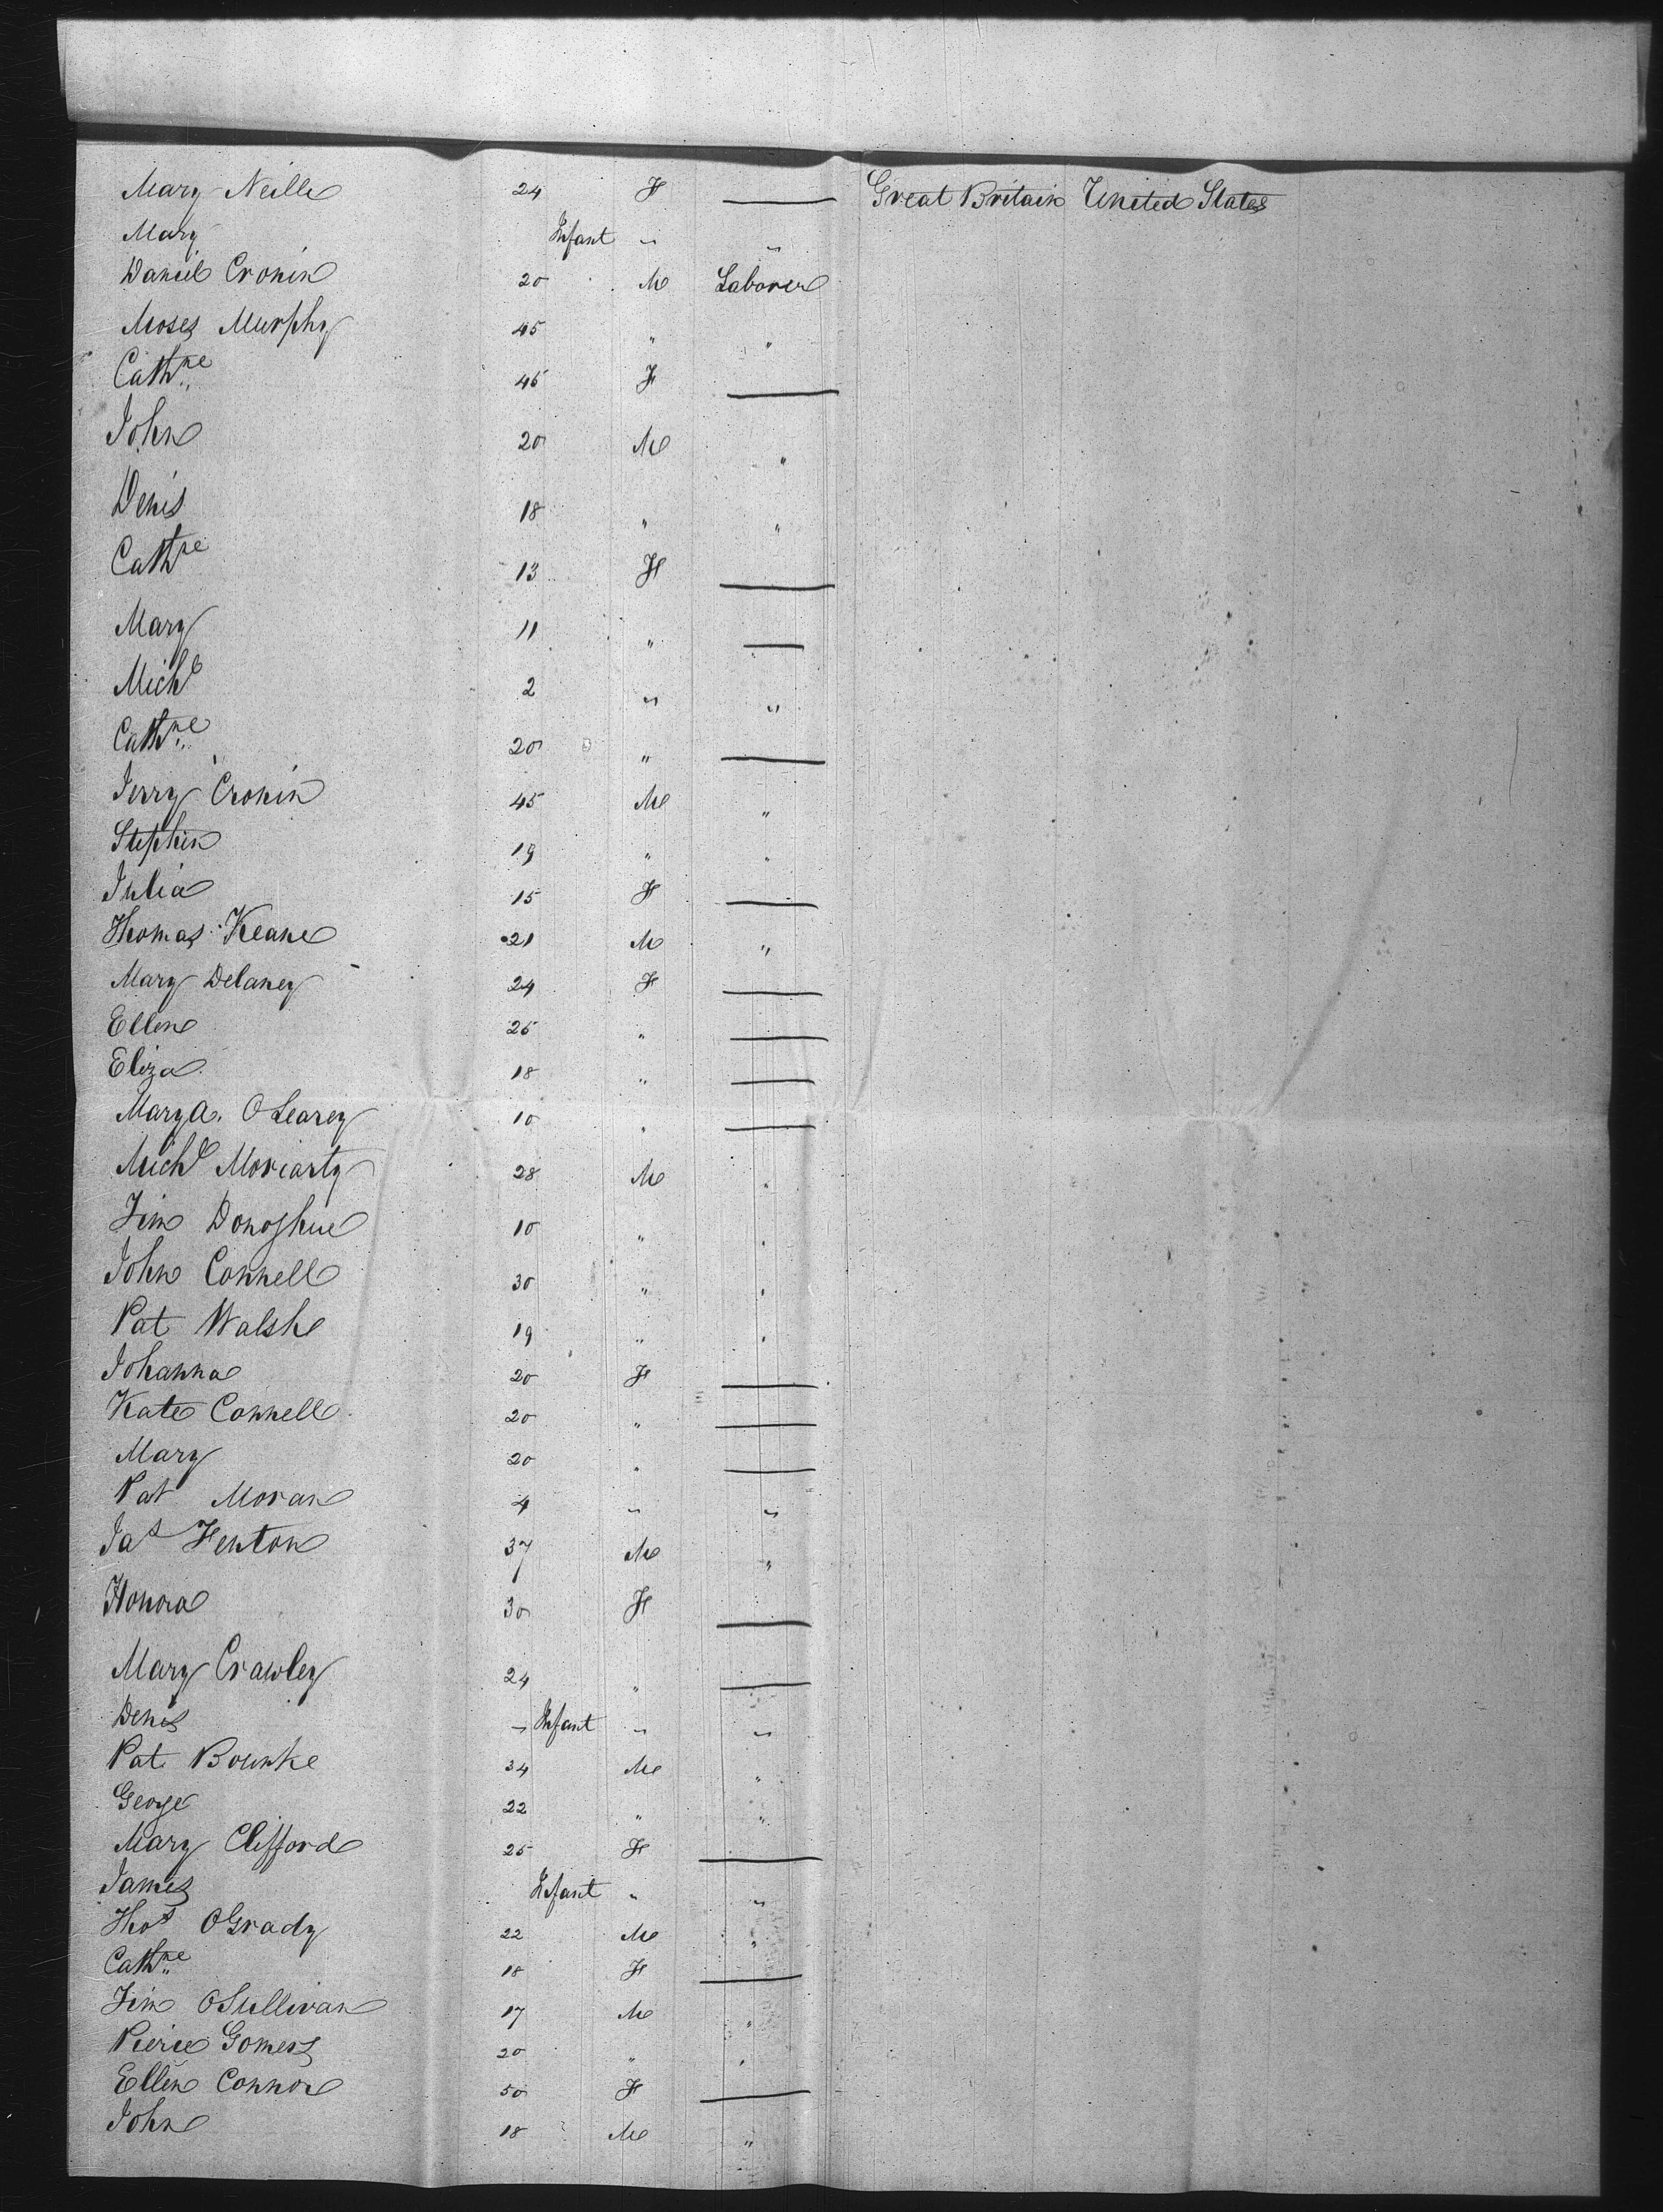 Mary Neille 24 F —— Great Britain United States
Mary Infant " "
Daniel Cronin 20 M Laborer
Moses Murphy 45 " "
Cathne 45 F ——
John 20 M "
Denis 18 " "
Cathne 13 F ——
Mary 11 " ——
Michl 2 " "
Cathne 20 " ——
Jerry Cronin 45 M "
Stephen 19 " "
Julia 15 F ——
Thomas Keane 21 M "
Mary Delaney 24 F ——
Ellen 26 " ——
Eliza 18 " ——
Mary A. OLearey 10 " ——
Michl Moriarty 28 M "
Tim Donoghue 10 " "
John Connell 30 " "
Pat Walshe 19 " "
Johanna 20 F ——
Kate Connell 20 " ——
Mary 20 " ——
Pat Moran 4 " "
Jas Fenton 37 M "
Honora 30 F ——
Mary Crawley 24 " ——
Denis – Infant " "
Pat Bourke 34 M "
George 22 " "
Mary Clifford 25 F ——
James Infant " "
Thos OGrady 22 M "
Cathne 18 F ——
Tim OSullivan 17 M "
Pierce Gomers 20 " "
Ellen Connor 50 F ——
John 18 M "